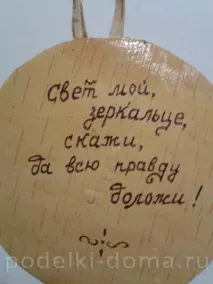 Свет мой,
зеркальце,
скажи,
да всю правду
доложи!
podelki-doma.ru